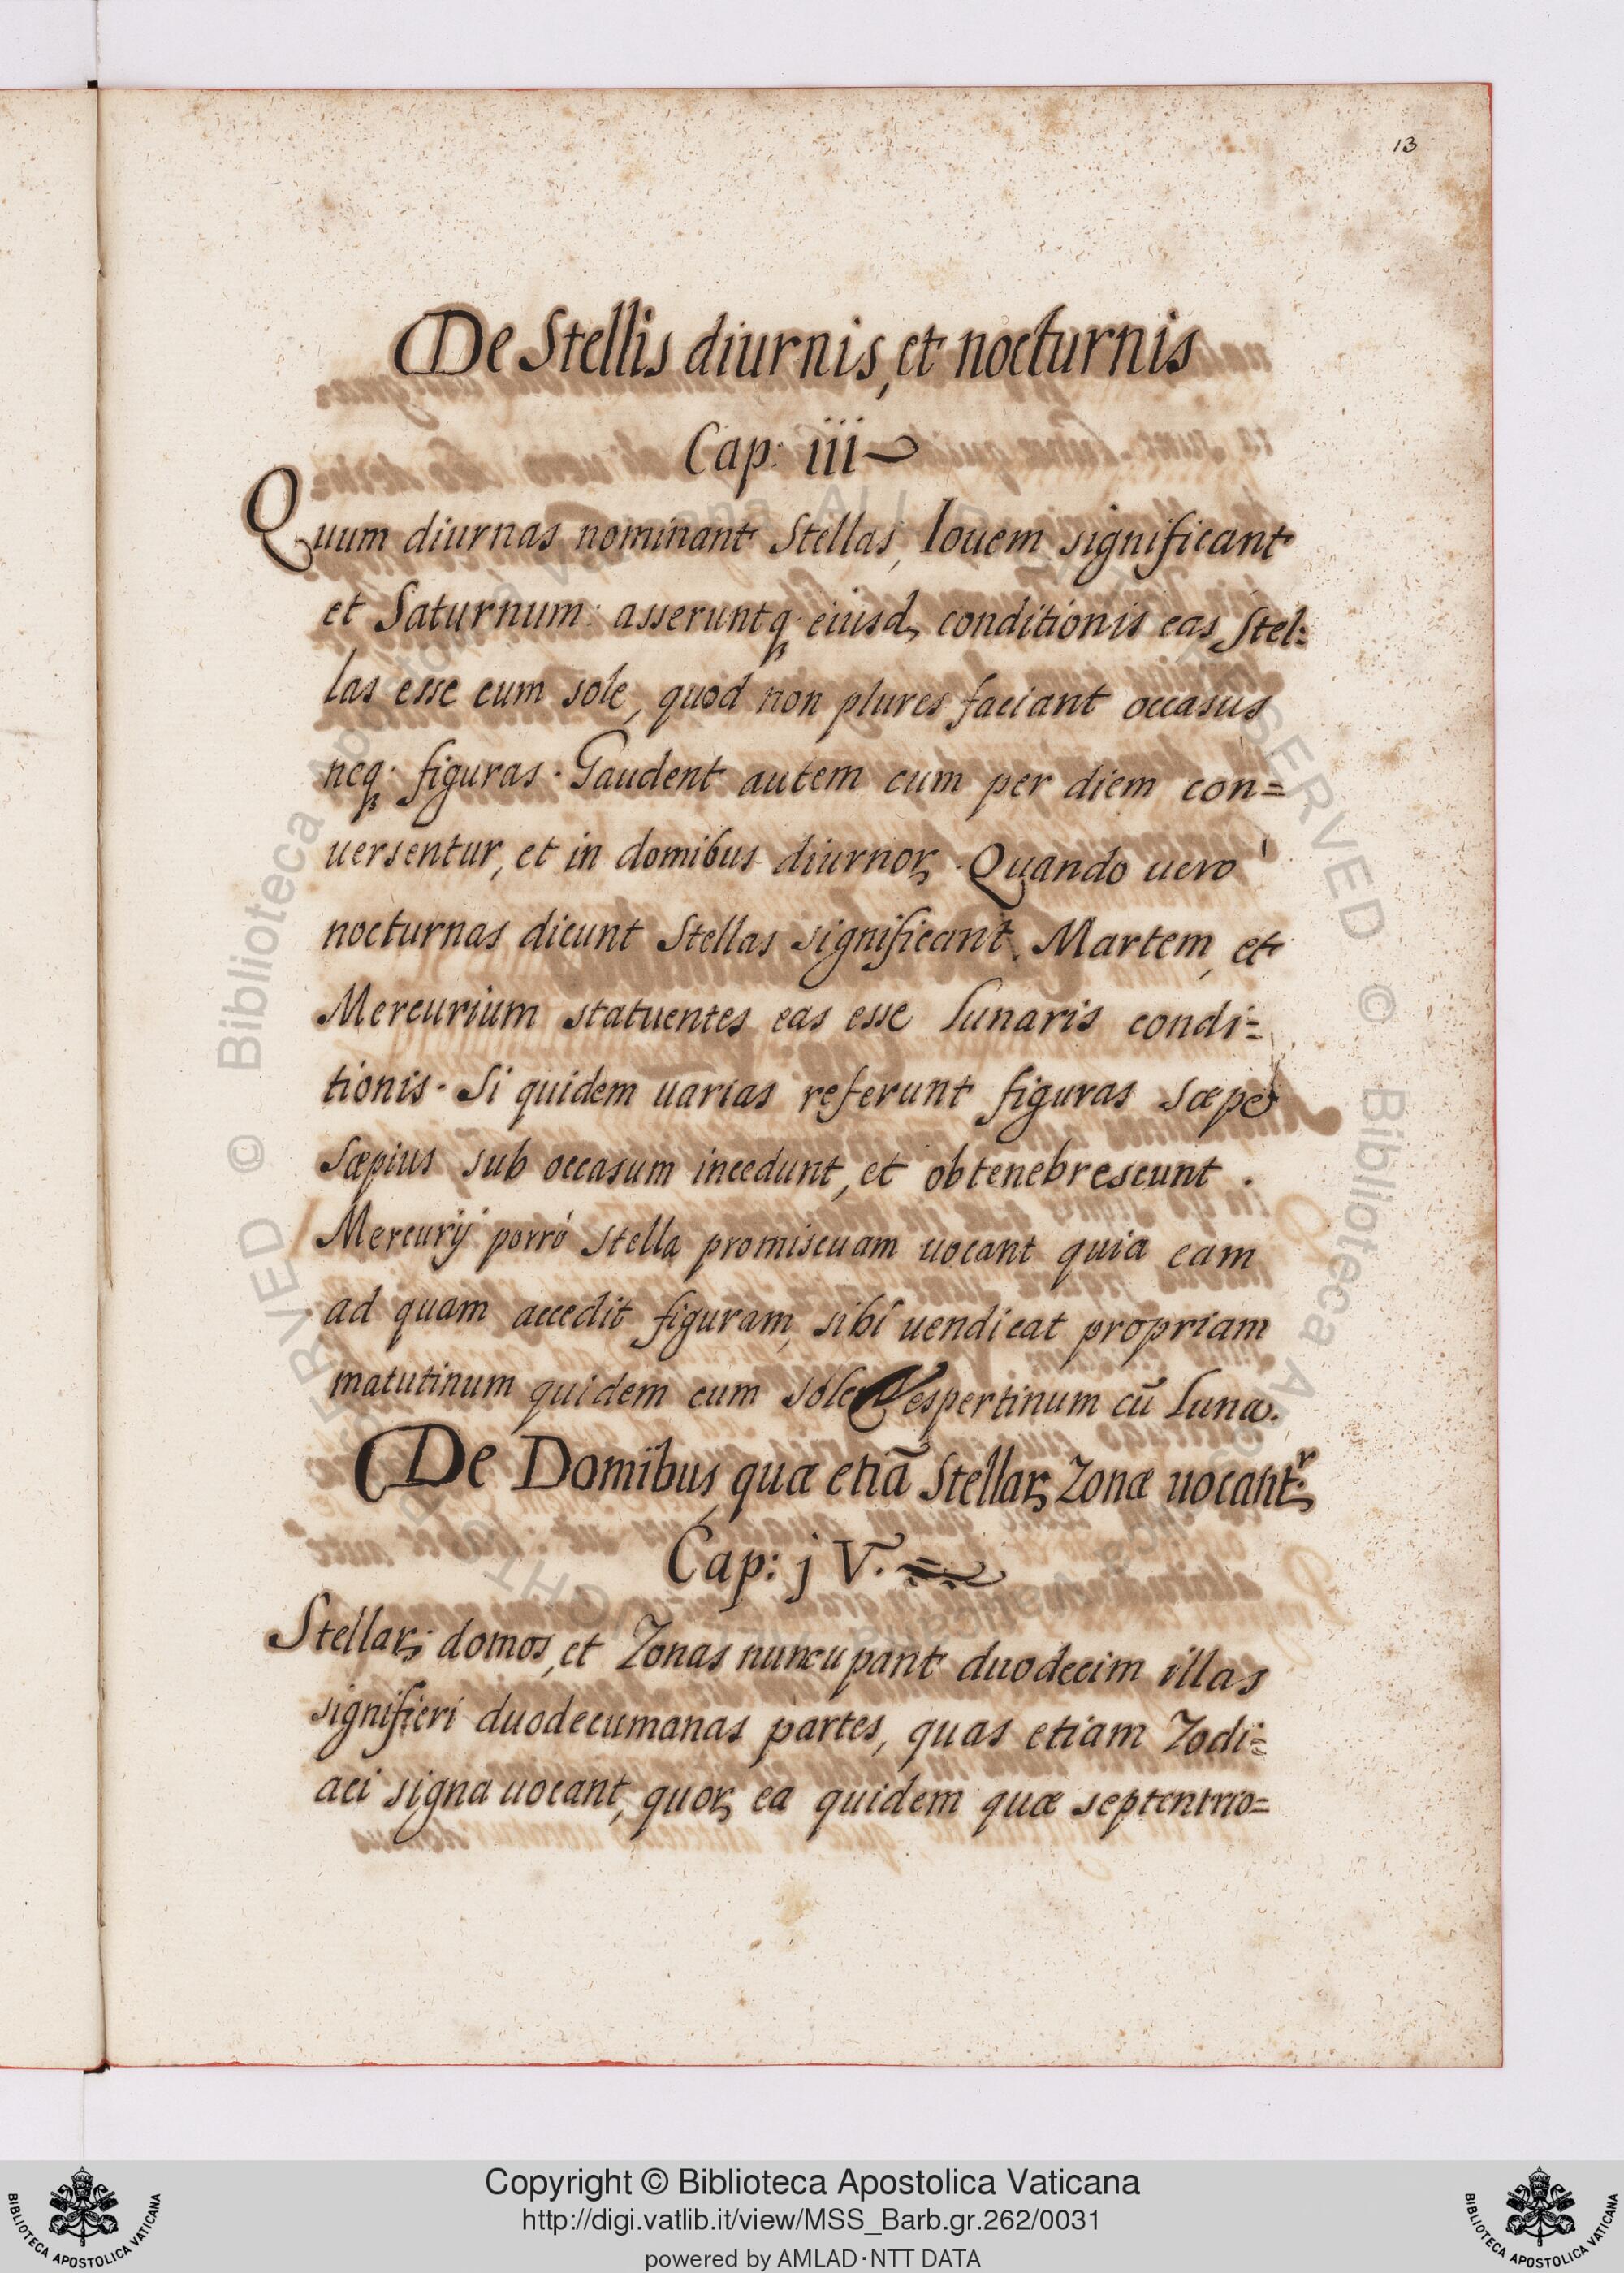 13
De Stellis diurnis, et nocturnis
Cap: iii
Quum diurnas nominant Stellas, Iouem significant
et Saturnum: asseruntqꝫ eiusd, conditionis eas Stel:
las esse cum sole, quod non plures faciant occasus
neqꝫ figuras. Gaudent autem cum per diem con=
uersentur, et in domibus diurnoꝝ. Quando uero
nocturnas dicunt Stellas significant Martem, et
Mercurium statuentes eas esse lunaris condi=
tionis. Si quidem uarias referunt figuras sæpe
sæpius sub occasum incedunt, et obtenebrescunt.
Mercurij porrò stella promiscuam uocant quia eam
ad quam accedit figuram, sibi uendicat propriam
matutinum quidem cum sole Vespertinum cū Luna.
De Domibus quæ etiā Stellaꝝ Zonæ uocantʳ
Cap: jV.
Stellaꝝ domos, et Zonas nuncupant duodecim illas
signiferi duodecumanas partes, quas etiam Zodi=
aci signa uocant, quoꝝ ea quidem quæ septentrio=
© Biblioteca Apostolica Vaticana ALL RIGHTS RESERVED
BIBLIOTECA APOSTOLICA VATICANA
Copyright © Biblioteca Apostolica Vaticana
http://digi.vatlib.it/view/MSS_Barb.gr.262/0031
powered by AMLAD·NTT DATA
BIBLIOTECA APOSTOLICA VATICANA